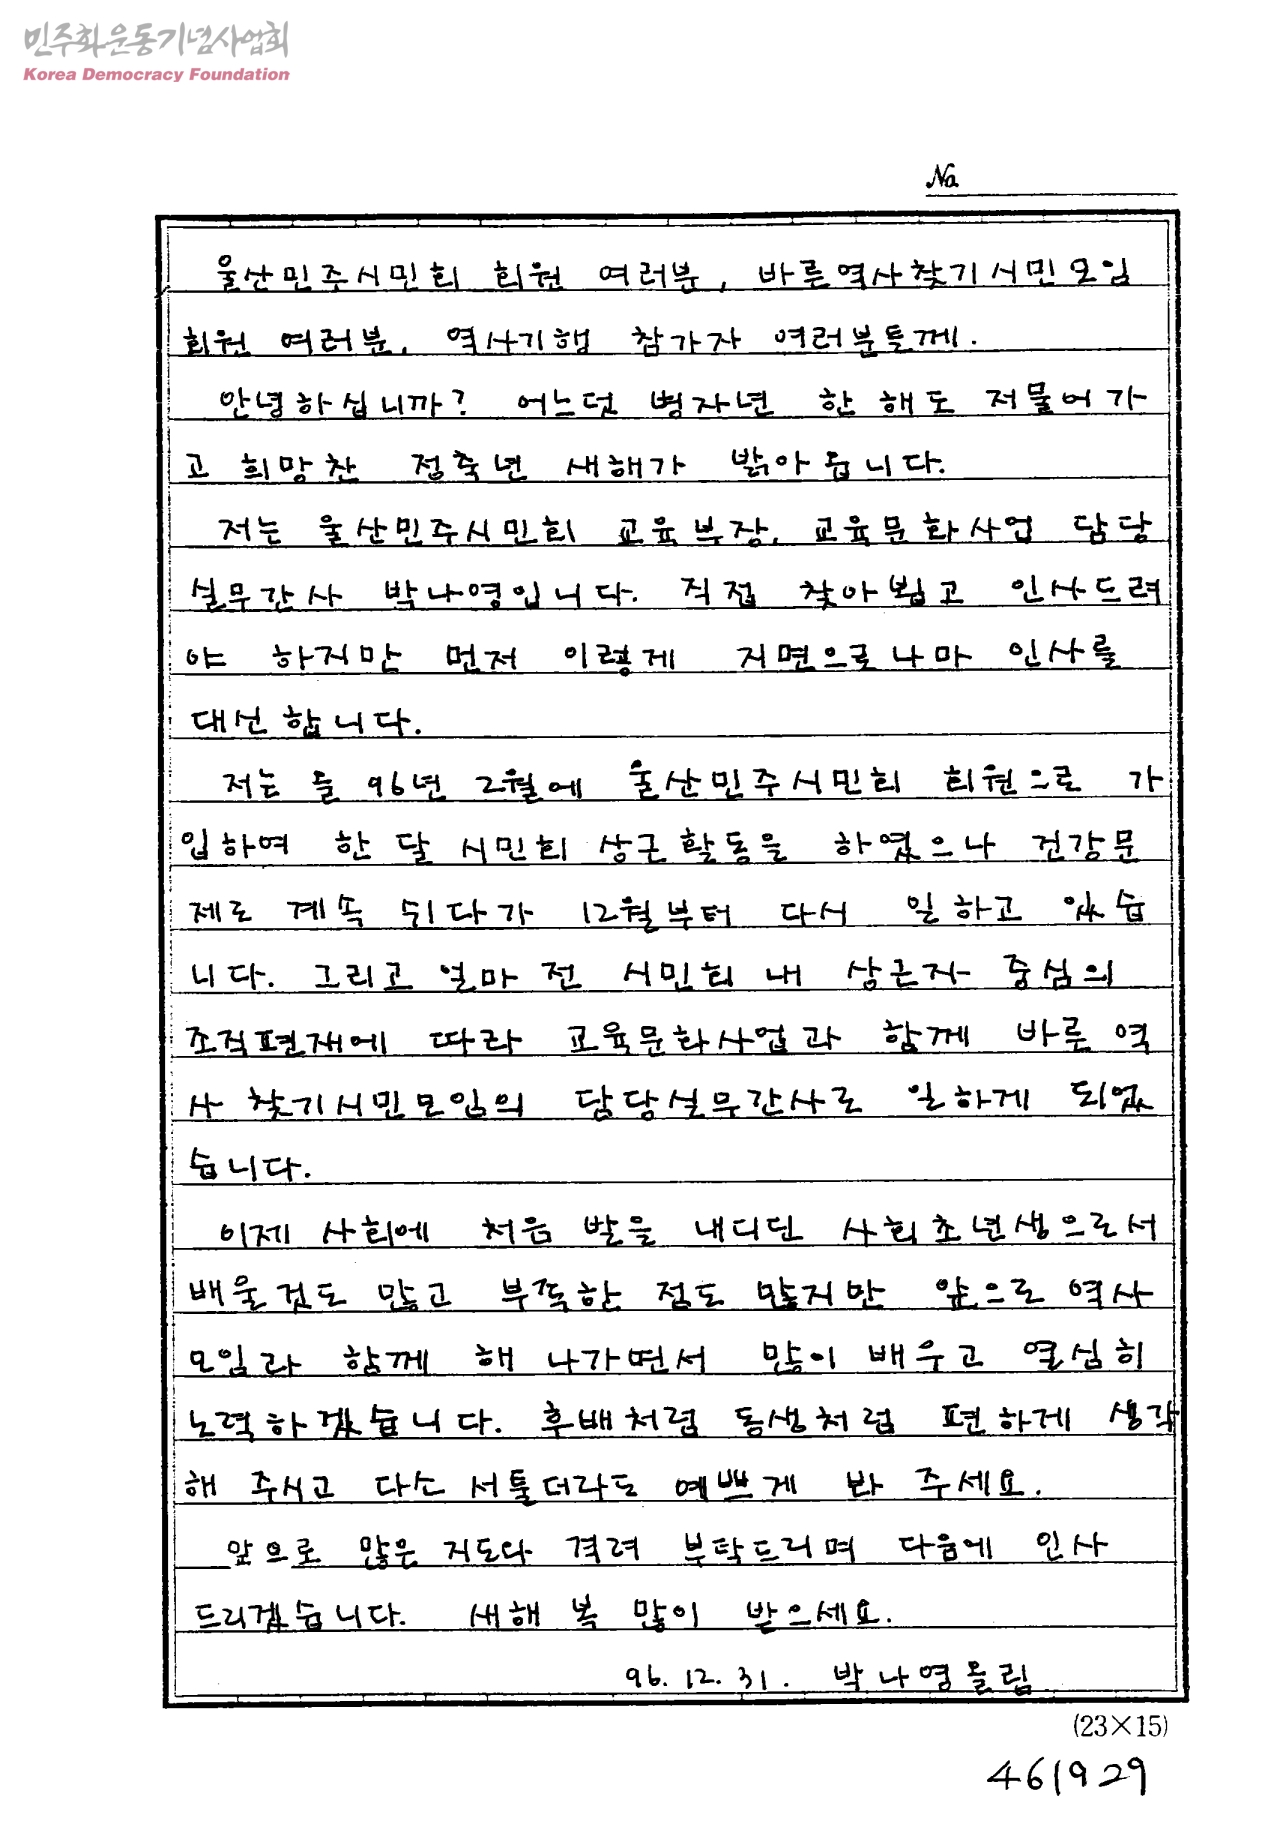 민주화운동기념사업회
Korea Democracy Foundation
No
울산민주시민회 회원 여러분, 바른역사찾기시민모임
회원 여러분, 역사기행 참가자 여러분들께.
안녕하십니까? 어느덧 병자년 한 해도 저물어가
고 희망찬 정축년 새해가 밝아옵니다.
저는 울산민주시민회 교육부장, 교육문화사업 담당
실무간사 박나영입니다. 직접 찾아뵙고 인사드려
야 하지만 먼저 이렇게 지면으로나마 인사를
대신합니다.
저는 올 96년 2월에 울산민주시민회 회원으로 가
입하여 한 달 시민회 상근활동을 하였으나 건강문
제로 계속 쉬다가 12월부터 다시 일하고 있습
니다. 그리고 얼마 전 시민회 내 상근자 중심의
조직편재에 따라 교육문화사업과 함께 바른 역
사 찾기시민모임의 담당실무간사로 일하게 되었
습니다.
이제 사회에 처음 발을 내디딘 사회초년생으로서
배울것도 많고 부족한 점도 많지만 앞으로 역사
모임과 함께 해 나가면서 많이 배우고 열심히
노력하겠습니다. 후배처럼 동생처럼 편하게 생각
해 주시고 다소 서툴더라도 예쁘게 봐 주세요.
앞으로 많은 지도와 격려 부탁드리며 다음에 인사
드리겠습니다. 새해 복 많이 받으세요.
96. 12. 31. 박나영올림
(23×15)
461929